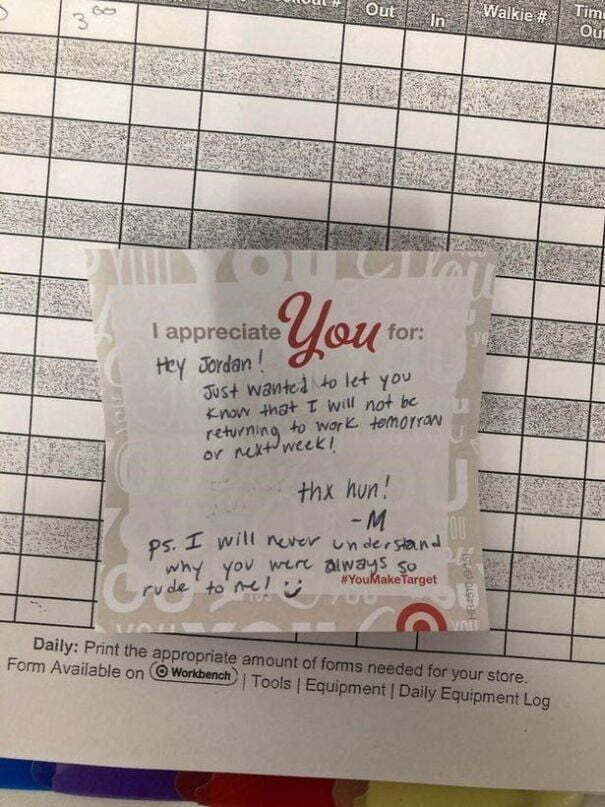 3 00
Out
In
Walkie #
Time
Out
I appreciate You for:
Hey Jordan!
Just wanted to let you
know that I will not be
returning to work tomorrow
or next week!
thx hun!
-M
ps. I will never understand
why you were always so
rude to me! :)
#YouMakeTarget
Daily: Print the appropriate amount of forms needed for your store.
Form Available on Workbench | Tools | Equipment | Daily Equipment Log